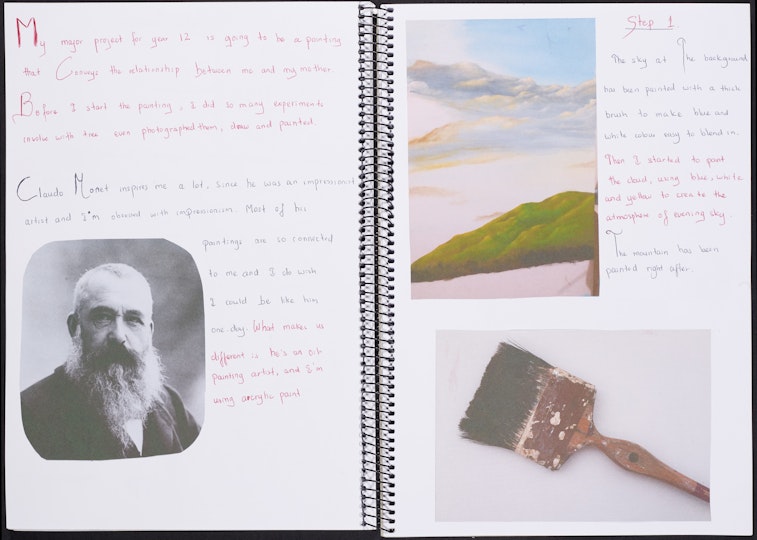 My major project for year 12 is going to be a painting
that Conveys the relationship between me and my mother.
Before I start the painting, I did so many experiments
involve with tree even photographed them, draw and painted.
Claude Monet inspires me a lot, since he was an impressionist
artist and I'm obsessed with impressionism. Most of his
paintings are so connected
to me and I do wish
I could be like him
one day. What makes us
different is he's an oil
painting artist, and I'm
using acrylic paint
Step 1
The sky at The background
has been painted with a thick
brush to make blue and
white colour easy to blend in.
Then I started to paint
the cloud, using blue, white
and yellow to create the
atmosphere of evening sky.
The mountain has been
painted right after.